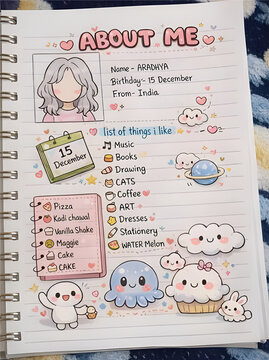 ABOUT ME
Name - ARADHYA
Birthday:- 15 December
From:- India
list of things i like
15
December
Music
Books
Drawing
CATS
Coffee
ART
Dresses
Stationery
WATER Melon
Pizza
Kadi chawal
Vanilla Shake
Maggie
Cake
CAKE